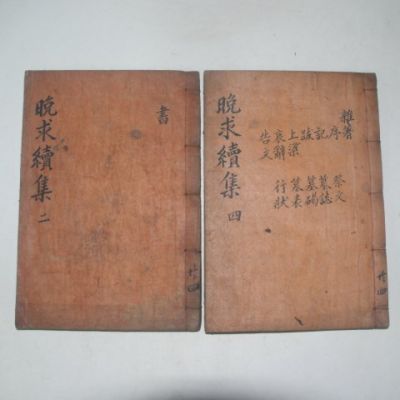 晚求續集 二
書
共四
晚求續集 四
雜著
序 祭文
記 墓誌
跋 墓碣
上梁 墓表
哀辭 行狀
告文
共四